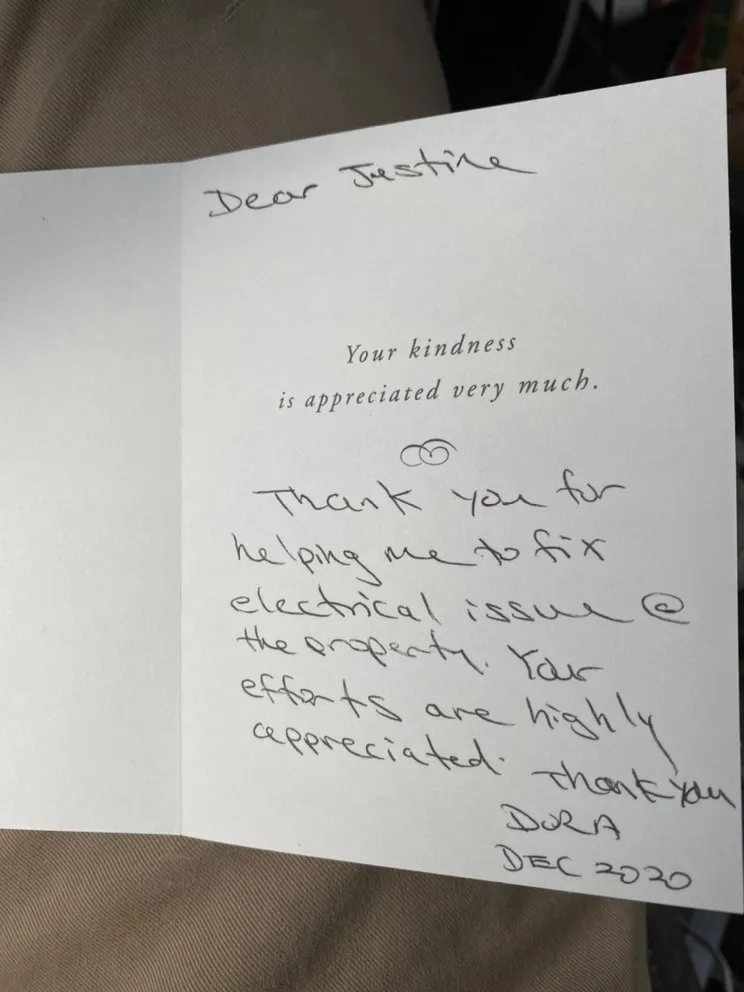 Dear Justine
Your kindness
is appreciated very much.
Thank you for
helping me to fix
electrical issue @
the property. Your
efforts are highly
appreciated. Thank you
DORA
DEC 2020